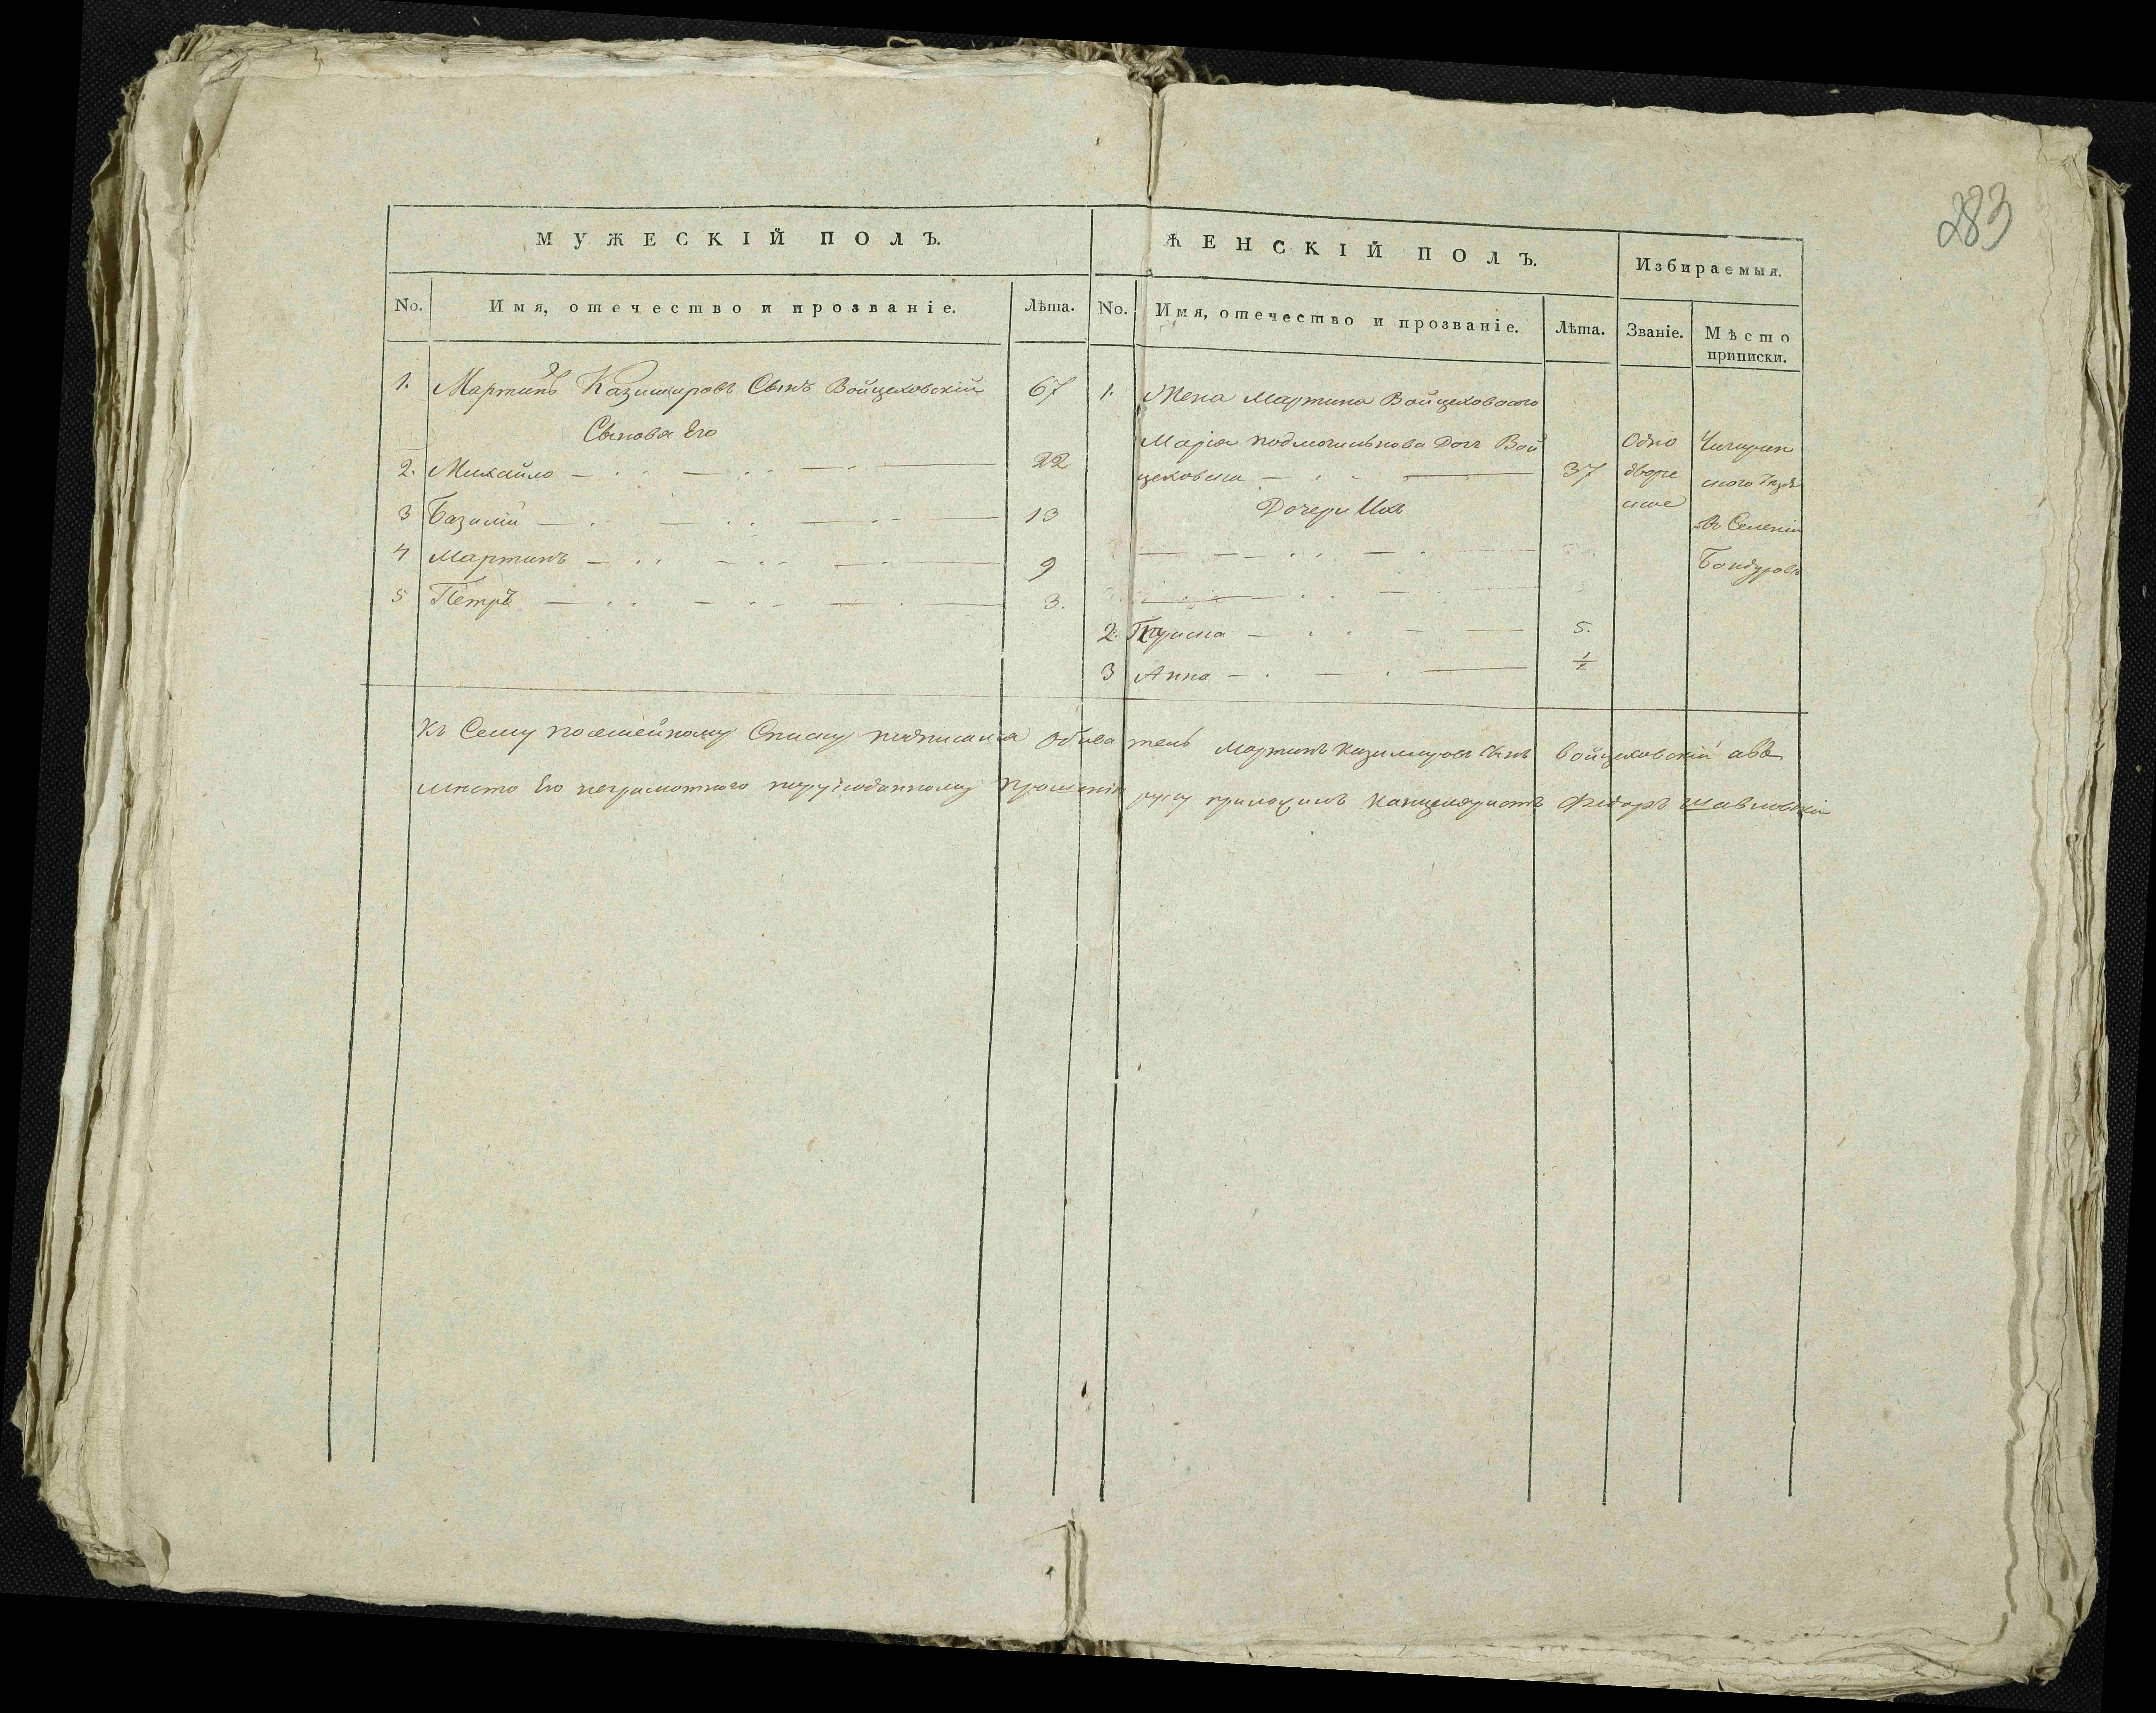 283
МУЖЕСКІЙ ПОЛЪ. ЖЕНСКІЙ ПОЛЪ. Избираемыя.
No. Имя, отечество и прозваніе. Лѣта. No. Имя, отечество и прозваніе. Лѣта. Званіе. Мѣсто приписки.
1. Мартинъ Казимировъ Сынъ Войцеховскій 67
Сыновья Его
2. Михайло 22
3 Базилій 13
4 Мартинъ 9
5 Петръ 3.
1. Жена Мартина Войцеховского
Марія Дочь Вой
цеховска 37
Дочери Ихъ
2. 5.
3 Анна 1/2
Одно
дворе
ское
Чигирин
ского
въ Селеніи
Бондуровке
Къ Сему посемейному Списку подписался обыватель Мартинъ Казимировъ Сынъ Войцеховскій авъ
место Его неграмотного прошенію руку приложилъ Канцеляристъ Федоръ